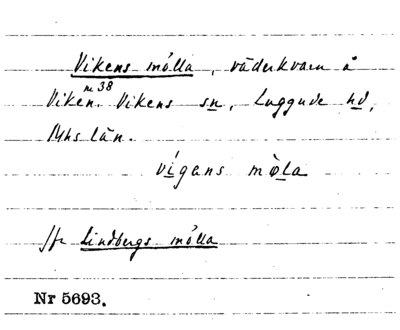 Vikens mölla, väderkvarn å
Viken nr 38 Vikens sn, Luggude hd,
Mhs län.
vígans mø̀la
Jfr Lindbergs mölla
Nr 5693.